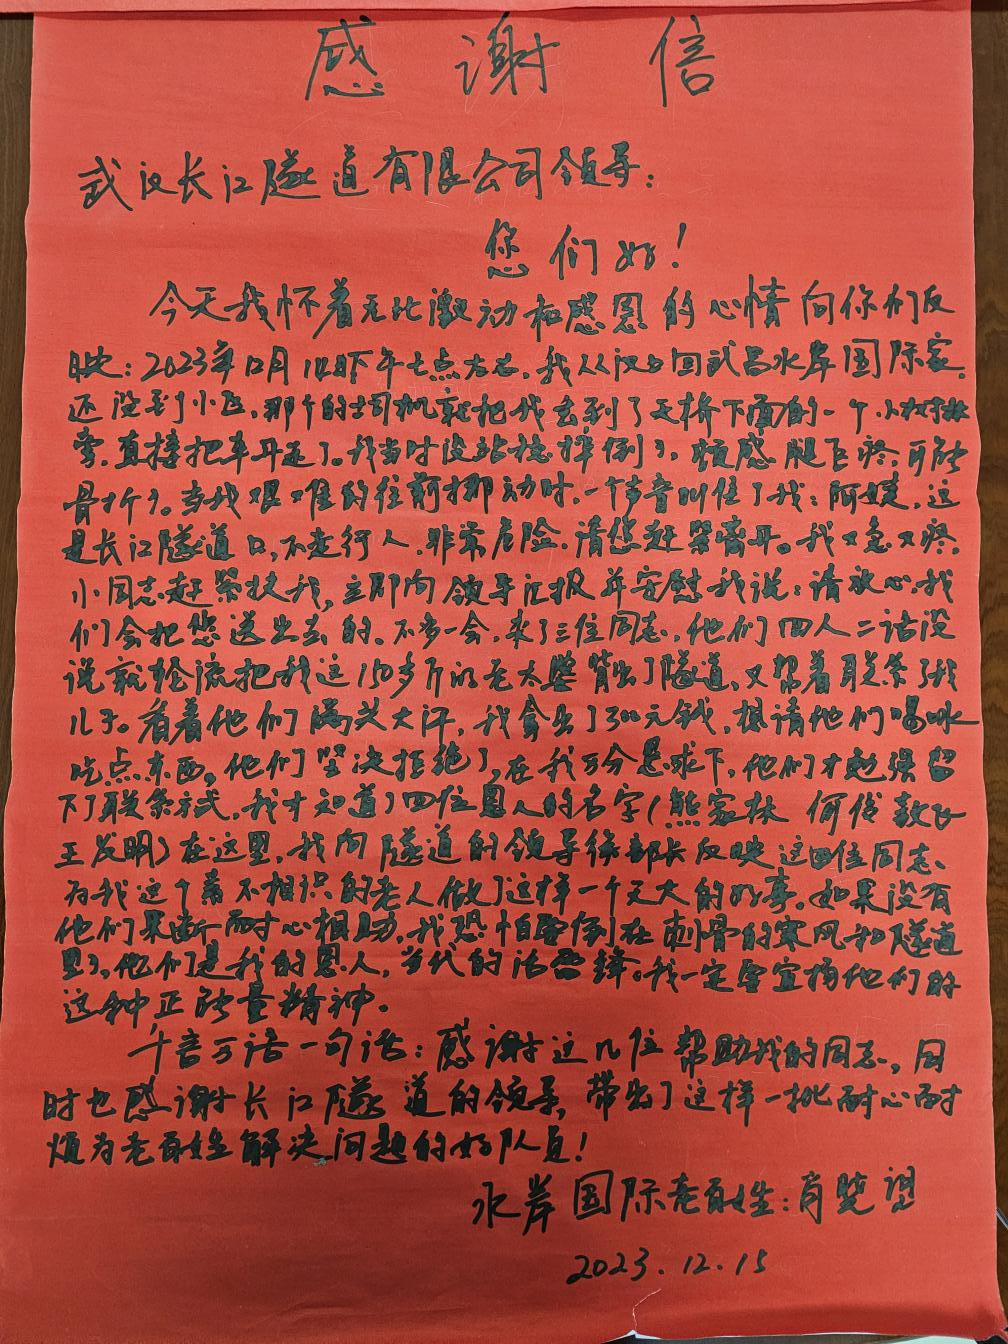 感谢信
武汉长江隧道有限公司领导:
您们好!
今天我怀着无比激动和感恩的心情向你们反
映:2023年12月1日下午七点左右,我从汉口回武昌水岸国际家,
还没到小区,那个的士司机就把我丢到了天桥下面的一个小树林
旁,直接把车开走了。我当时没站稳摔倒了,顿感腿巨疼,可能
骨折了。当我艰难的往前挪动时,一个声音叫住了我:阿姨,这
是长江隧道口,不走行人,非常危险,请您赶紧离开。我又急又疼,
小同志赶紧扶我,立即向领导汇报并安慰我说:请放心,我
们会把您送出去的。不多一会,来了三位同志,他们四人二话没
说就轮流把我这150多斤的老太婆背出了隧道,又帮着联系了我
儿子。看着他们满头大汗,我拿出了300元钱,想请他们喝水
吃点东西,他们坚决拒绝了,在我万分恳求下,他们才勉强留
下了联系方式,我才知道了四位恩人的名字(熊家林 何俊
王发明)在这里,我向隧道的领导徐部长反映这四位同志,
为我这个素不相识的老人做了这样一个天大的好事。如果没有
他们果断耐心相助,我恐怕要倒在刺骨的寒风和隧道
里了,他们是我的恩人,当代的活雷锋。我一定要宣扬他们的
这种正能量精神。
千言万语一句话:感谢这几位帮助我的同志,同
时也感谢长江隧道的领导,带出了这样一批耐心耐
烦为老百姓解决问题的好队员!
水岸国际老百姓:肖
2023.12.15